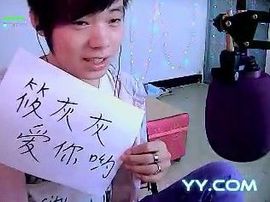 筱灰灰
爱你哟
YY.COM